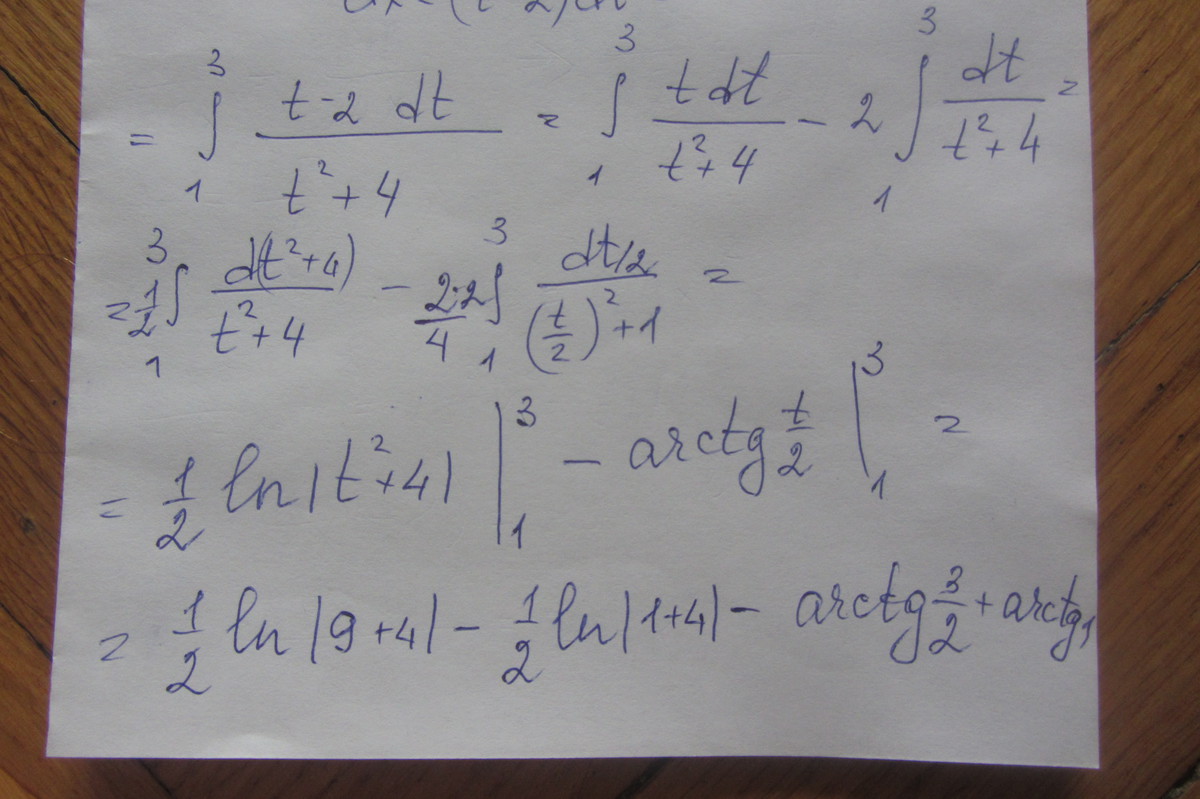 = ∫₁³ (t-2 dt)/(t²+4) = ∫₁³ (t dt)/(t²+4) - 2 ∫₁³ dt/(t²+4) =
= 1/2 ∫₁³ d(t²+4)/(t²+4) - (2·2)/4 ∫₁³ (dt/2)/((t/2)²+1) =
= 1/2 ln|t²+4| |₁³ - arctg t/2 |₁³ =
= 1/2 ln|9+4| - 1/2 ln|1+4| - arctg 3/2 + arctg 1